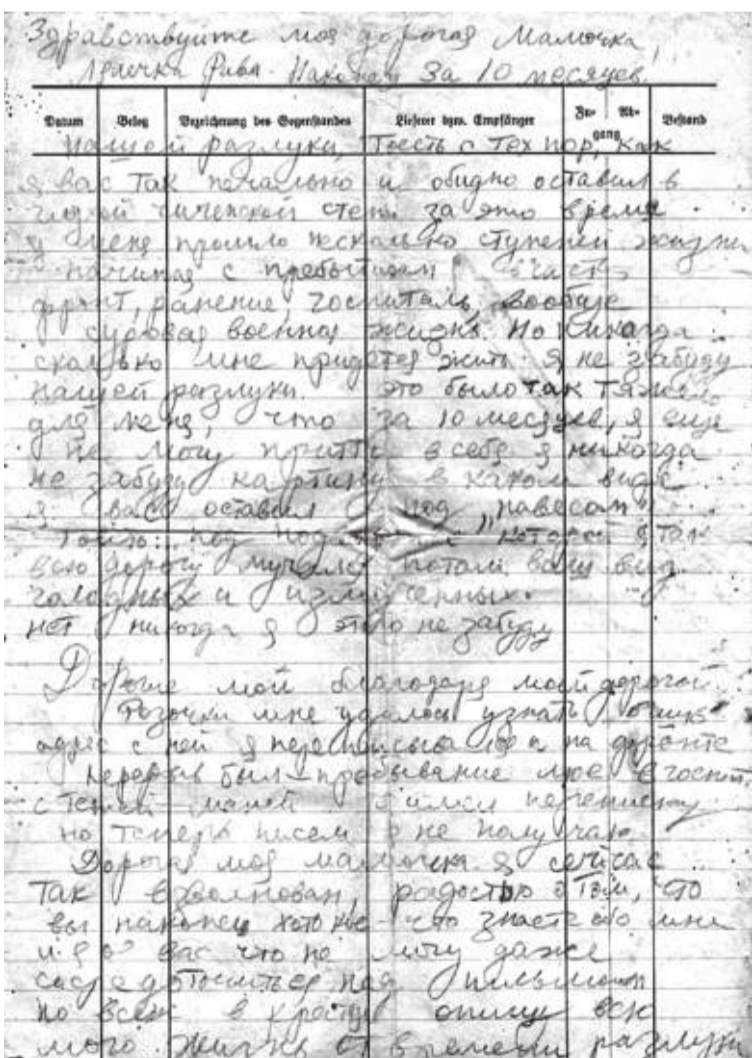 Здравствуйте моя дорогая Мамочка,
Рива. Наконец за 10 месяцев
Datum Beleg Bezeichnung des Gegenstandes Lieferer bzw. Empfänger Zu- Ab- gang Bestand
нашей разлуки, тоесть с тех пор, как
я вас так печально и обидно оставил в
степи за это время
у меня прошло несколько ступеней жизни
начиная с пребытием часть
фронт, ранение, госпиталь, вообще
суровая военная жизнь. Но никогда
сколько мне придется жить я не забуду
нашей разлуки. это было так тяжело
для меня, что за 10 месяцев, я еще
не могу притти в себя я никогда
не забуду картину в каком виде
я вас оставил под „навесом"
под я так
всю дорогу мучился ваш вид
голодных и измученных.
нет никогда я этого не забуду
Дорогие мои благодаря моей дорогой
Розочки мне удалось узнать ваш
адрес с ней я переписывался и на фронте
перерыв был — пребывание мое в госпит
с тетей маней я имел переписку
но теперь писем я не получаю.
Дорогая моя мамочка я сейчас
так взволнован, радостью о том, что
вы наконец хото кое-что знаете обо мне
и я о вас что не могу даже
сосредоточиться над письмом
но всеж в кратце опишу всю
мою жизнь от времени разлуки